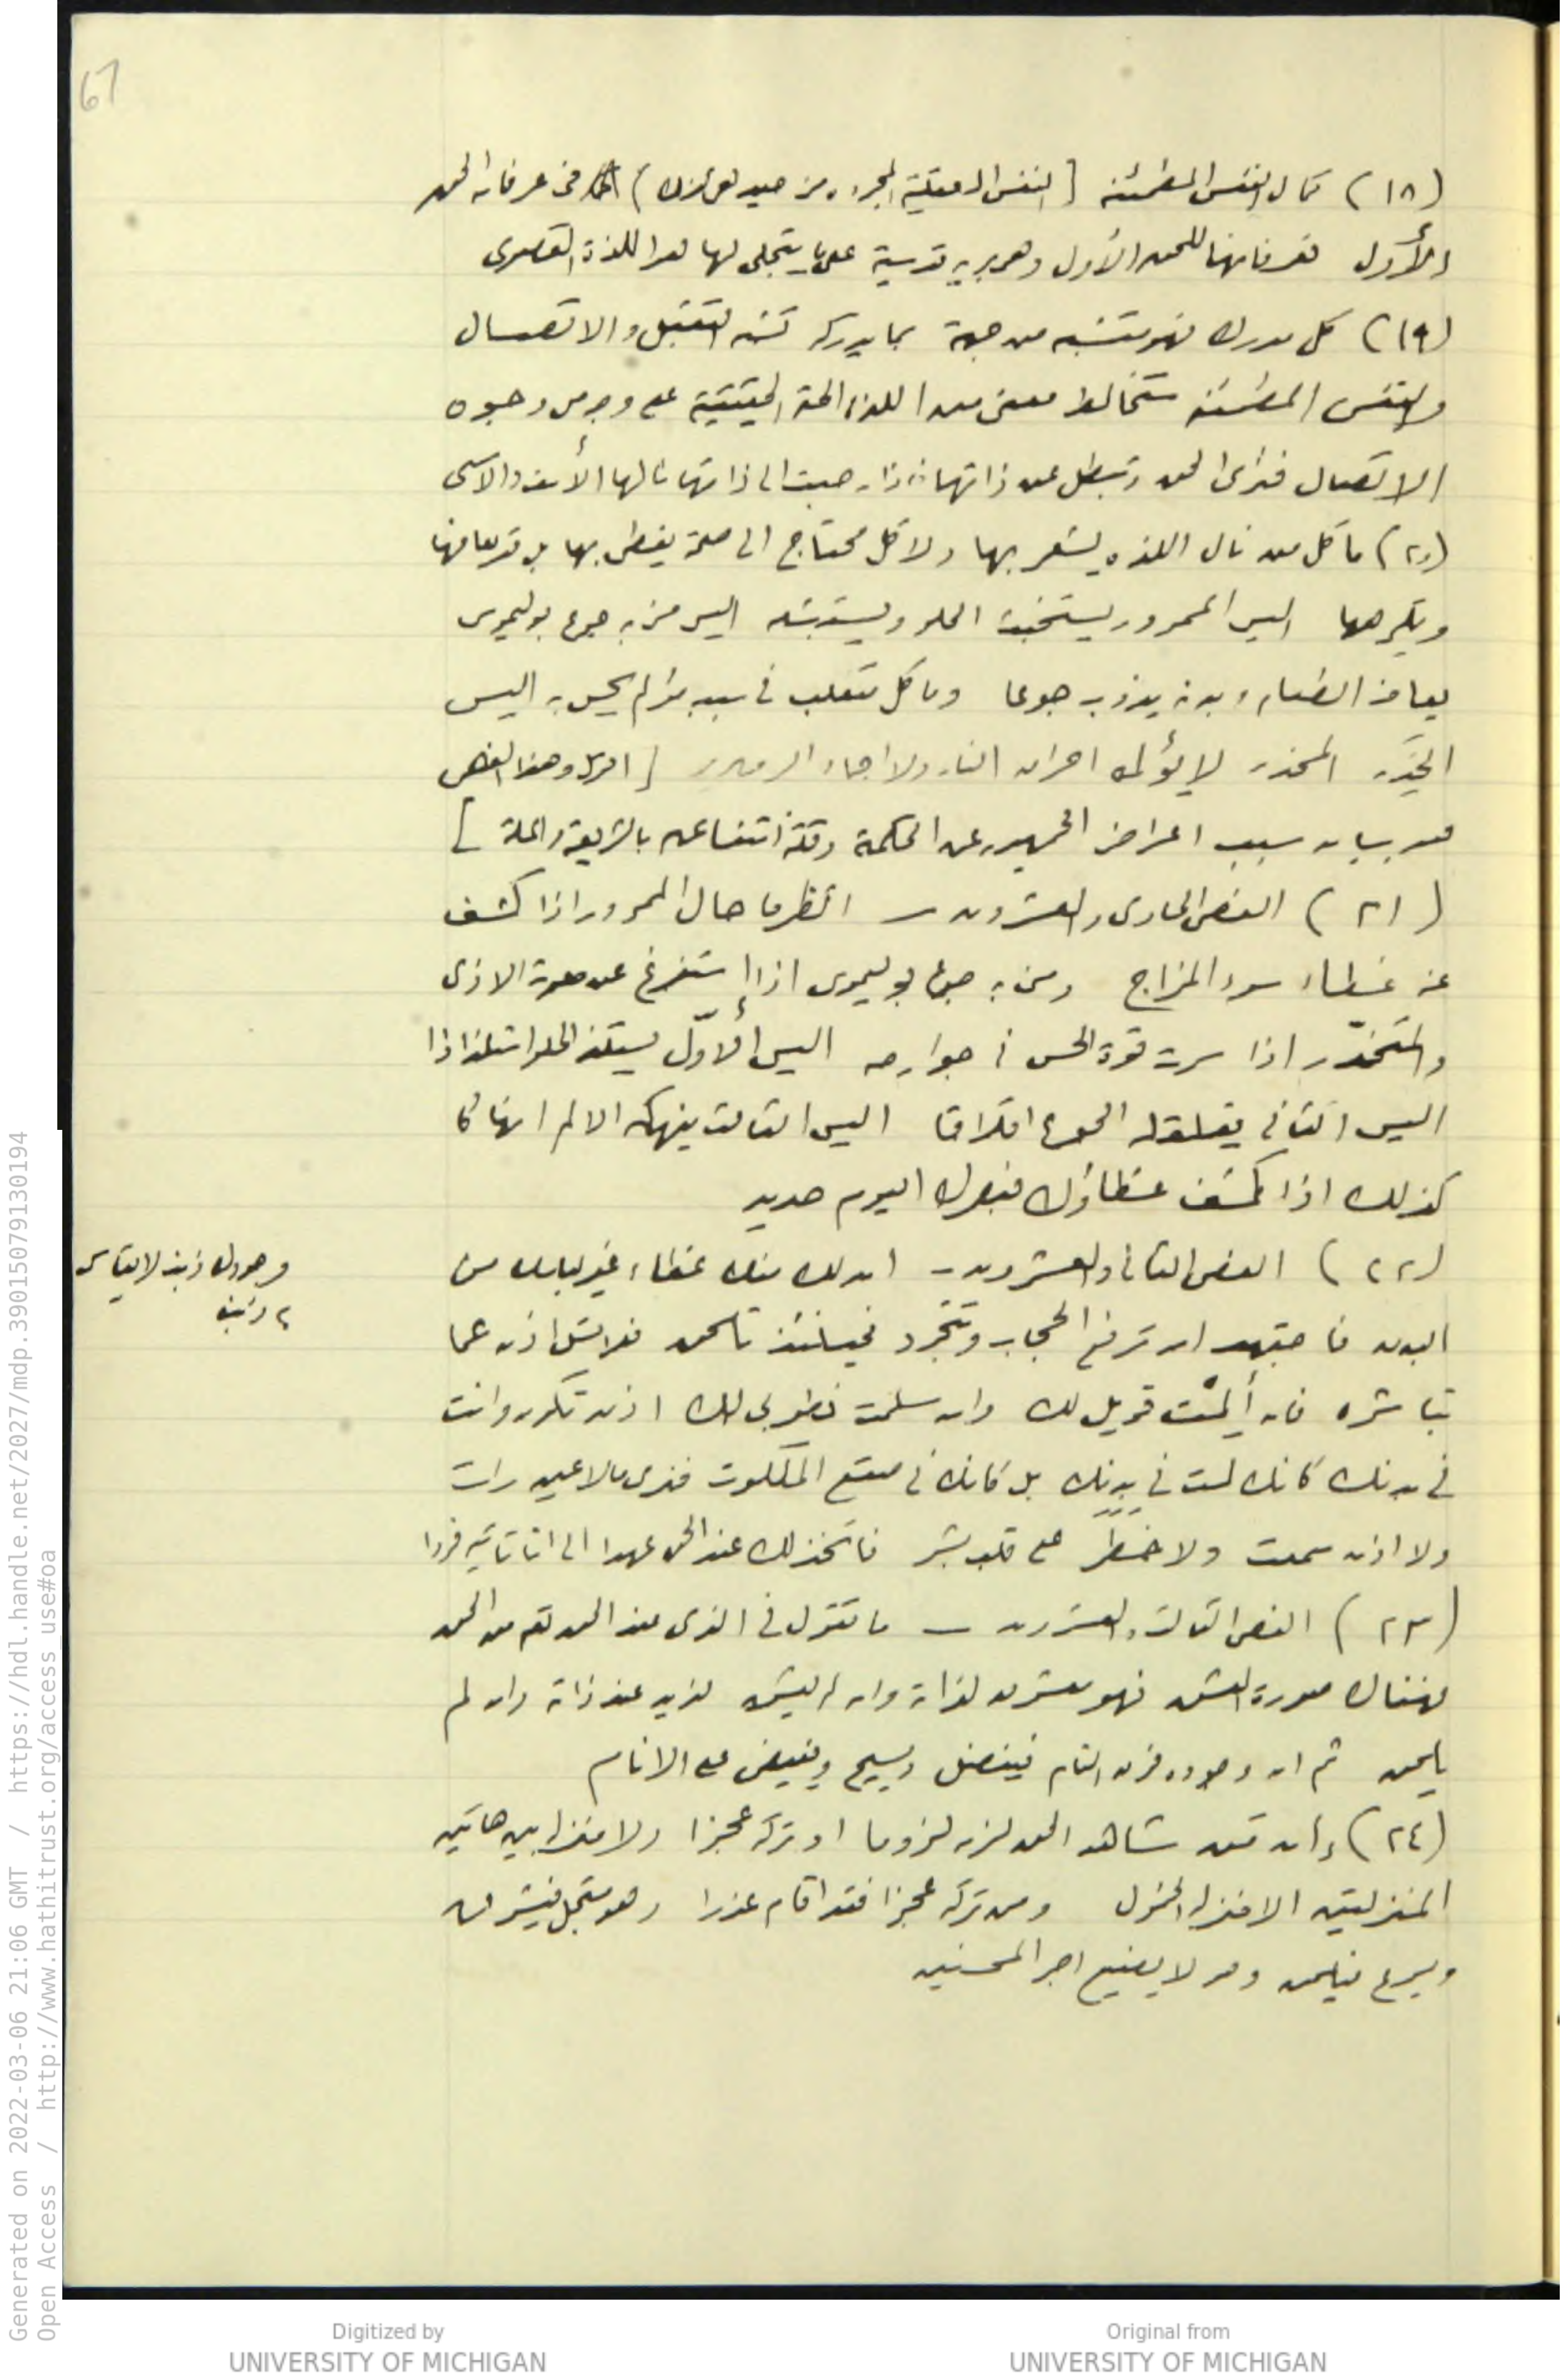 67
(١٨) كمال النفس المطمئنة [النفس العقلية المجردة من حيث هي كذلك) في عرفان الحق
الأول فعرفانها للحق الأول وهي بريه قدسية على ما يتجلى لها هو اللذة القصوى
(١٩) كل مدرك فهو متشبه من جهة بما يدركه تشبه التقبل والاتصال
والنفس المطمئنة ستخالط معنى من اللذة الحقة الحقيقية على وجه من وجوه
الاتصال فترى الحق وتبطل عن ذاتها فاذا رجعت الى ذاتها نالها الأسف والاسى
(٢٠) ما كل من نال اللذه يشعر بها ولا كل محتاج الى صحة يفطن بها بل قد يعافها
ويكرهها اليس الممرور يستخبث الحلو ويستبشعه اليس من به جوع بوليموس
يعاف الطعام وبدنه يذوب جوعا وما كل متقلب في سبب مؤلم يحس به اليس
الخدر المخدر لا يؤلمه احراق النار ولا اجماد الزمهرير [اقول وهذا الفص
هو بيان سبب اعراض الجمهور عن الحكمة وقلة انتفاعهم بالشريعة والملة]
(٢١) الفص الحادى والعشرون — انظر ما حال الممرور اذا كشف
عنه غطاء سوء المزاج ومن به جوع بوليموس اذا استفرغ عن معدته الاذى
والمتخدّر اذا سرت قوة الحس في جوارحه اليس الأوّل يستلذ الحلو استلذاذا
اليس الثاني يقلقه الجوع اقلاقا اليس الثالث ينهكه الالم انهاكا
كذلك اذا كشف غطاؤك فبصرك اليوم حديد
(٢٢) الفص الثاني والعشرون - ان لك منك غطاء غير لباسك من
البدن فاجتهد ان ترفع الحجاب وتتجرد فحينئذ تلحق فلا تسئل اذن عما
تباشره فان ألمت فويل لك وان سلمت فطوبى لك اذن تكون وانت
في بدنك كانك لست في بدنك بل كانك في صقع الملكوت فترى ما لا عين رات
ولا اذن سمعت ولا خطر على قلب بشر فاتخذ لك عند الحق عهدا الى ان تاتيه فردا
(٢٣) الفص الثالث والعشرون — ما تقول في الذى عند الحق تعم من الحق
فهناك صورة العشق فهو معشوق لذاته وان لم يعشق لذيذ عند ذاته وان لم
يلحق ثم ان وجوده فوق التام فيفضل ويسيح ويفيض على الانام
(٢٤) إن من شاهد الحق لزمه لزوما او تركه عجزا ولا منزلة بين هاتين
المنزلتين الا منزلة الخمول ومن تركه عجزا فقد اقام عذرا وهو متجل فيشرق
ويسرع فيلحق وهو لا يضيع اجر المحسنين
Generated on 2022-03-06 21:06 GMT / https://hdl.handle.net/2027/mdp.39015079130194
Open Access / http://www.hathitrust.org/access_use#oa
Digitized by
UNIVERSITY OF MICHIGAN
Original from
UNIVERSITY OF MICHIGAN